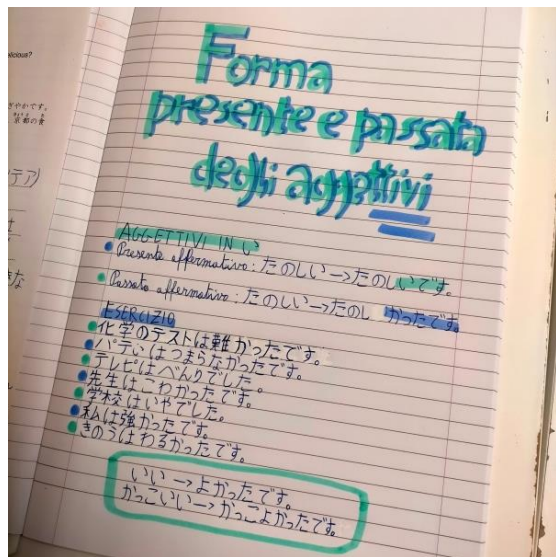 licious?
ぎやかです。
京都の食
テア)
Forma
presente e passata
degli aggettivi
AGGETTIVI IN い
Presente affermativo: たのしい→たのしいです。
Passato affermativo: たのしい→たのしかったです。
ESERCIZIO
化学のテストは難かったです。
パティはつまらなかったです。
テレビはべんりでした。
先生はこわかったです。
学校はいやでした。
私は強かったです。
きのうはわるかったです。
いい→よかったです。
かっこいい→かっこよかったです。